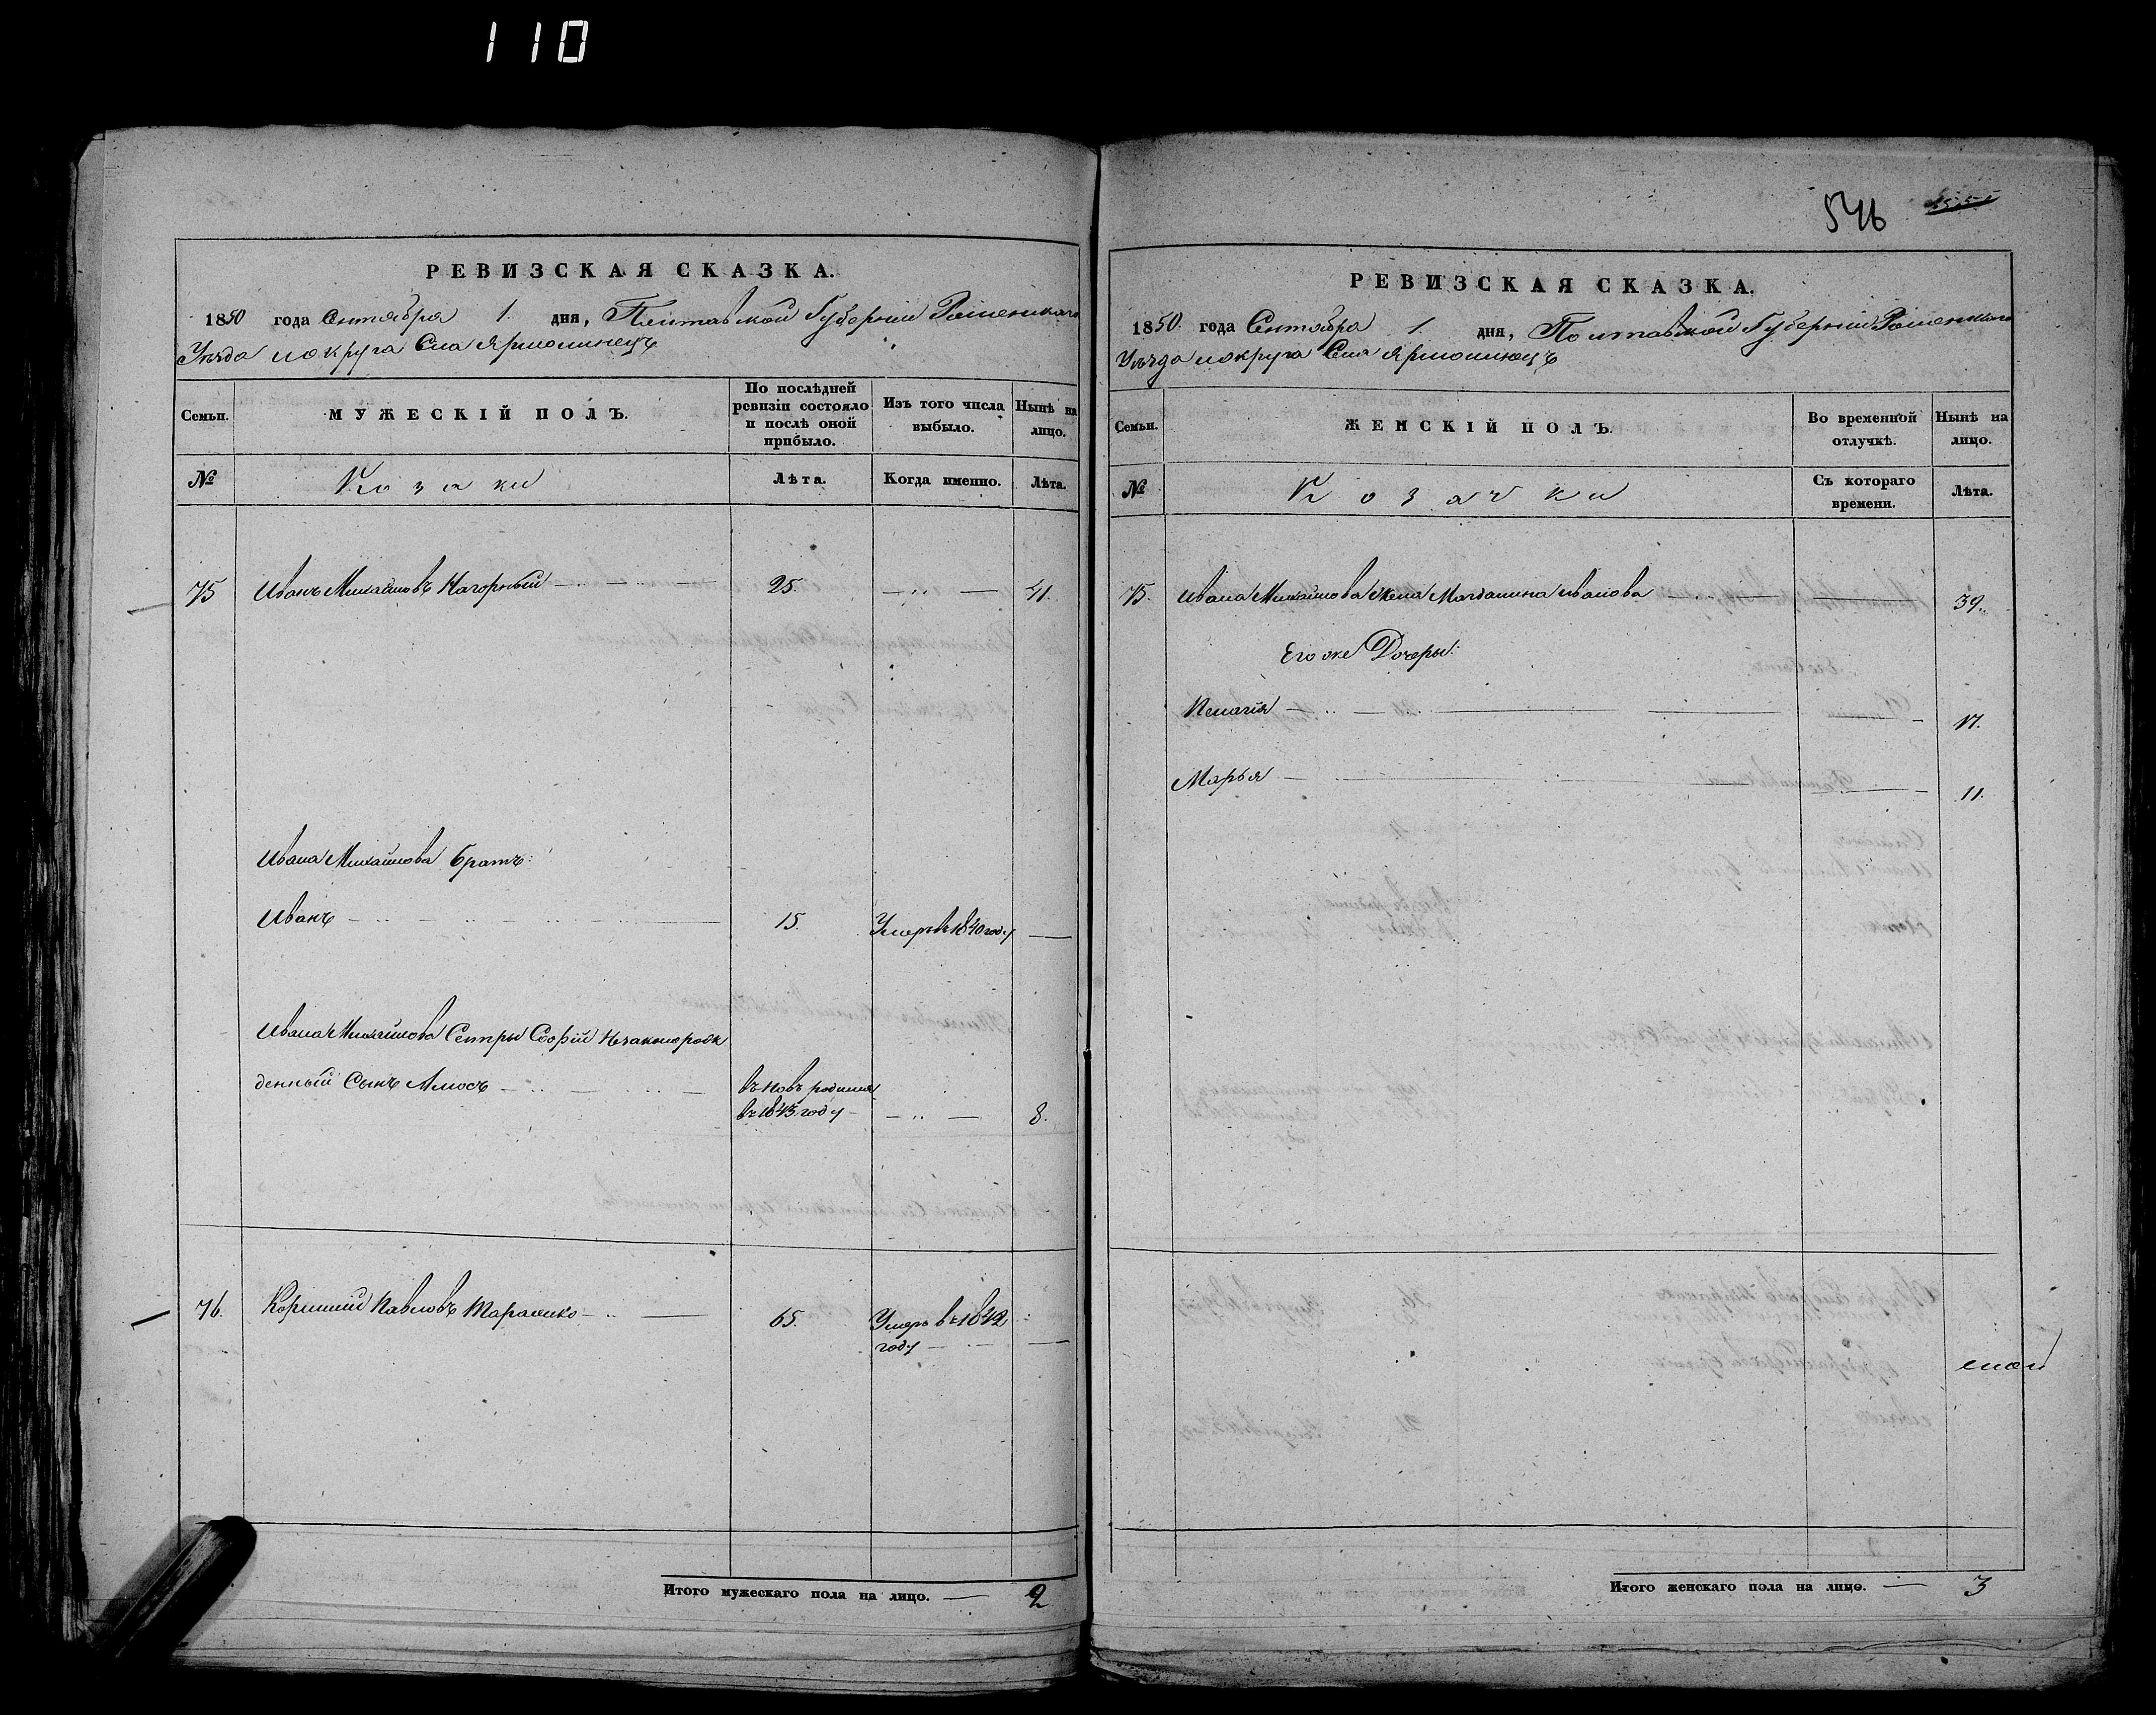 110
РЕВИЗСКАЯ СКАЗКА.
1850 года Сентября 1. дня, Полтавской Губернии Роменскаго
Уѣзда и округа Села Ярмолинецъ
Семьи.
МУЖЕСКІЙ ПОЛЪ.
По послѣдней ревизіи состояло и послѣ оной прибыло.
Изъ того числа выбыло.
Нынѣ на лицо.
№
Козаки
Лѣта.
Когда именно.
Лѣта.
75 Иванъ Михайловъ Нагорный 25. 41.
Ивана Михайлова братъ:
Иванъ 15. Умеръ въ 1840 году
Ивана Михайлова Сестры Софіи Незаконорож
денный Сынъ Амосъ
въ новь родился
въ 1843 году 8.
76. Павловъ Тараненко 65. Умеръ въ 1842
году
Итого мужескаго пола на лицо. 2
546
РЕВИЗСКАЯ СКАЗКА.
1850. года Сентября 1. дня, Полтавской Губерніи Роменскаго
Уѣзда и округа Села Ярмолинецъ
Семьи.
ЖЕНСКІЙ ПОЛЪ.
Во временной отлучкѣ.
Нынѣ на лицо.
№
Козачки
Съ котораго времени.
Лѣта.
75. Ивана Михайлова жена Магдалина Иванова 39.
Его же Дочеры:
Пелагія 17.
Марья 11.
Итого женскаго пола на лицо. 3